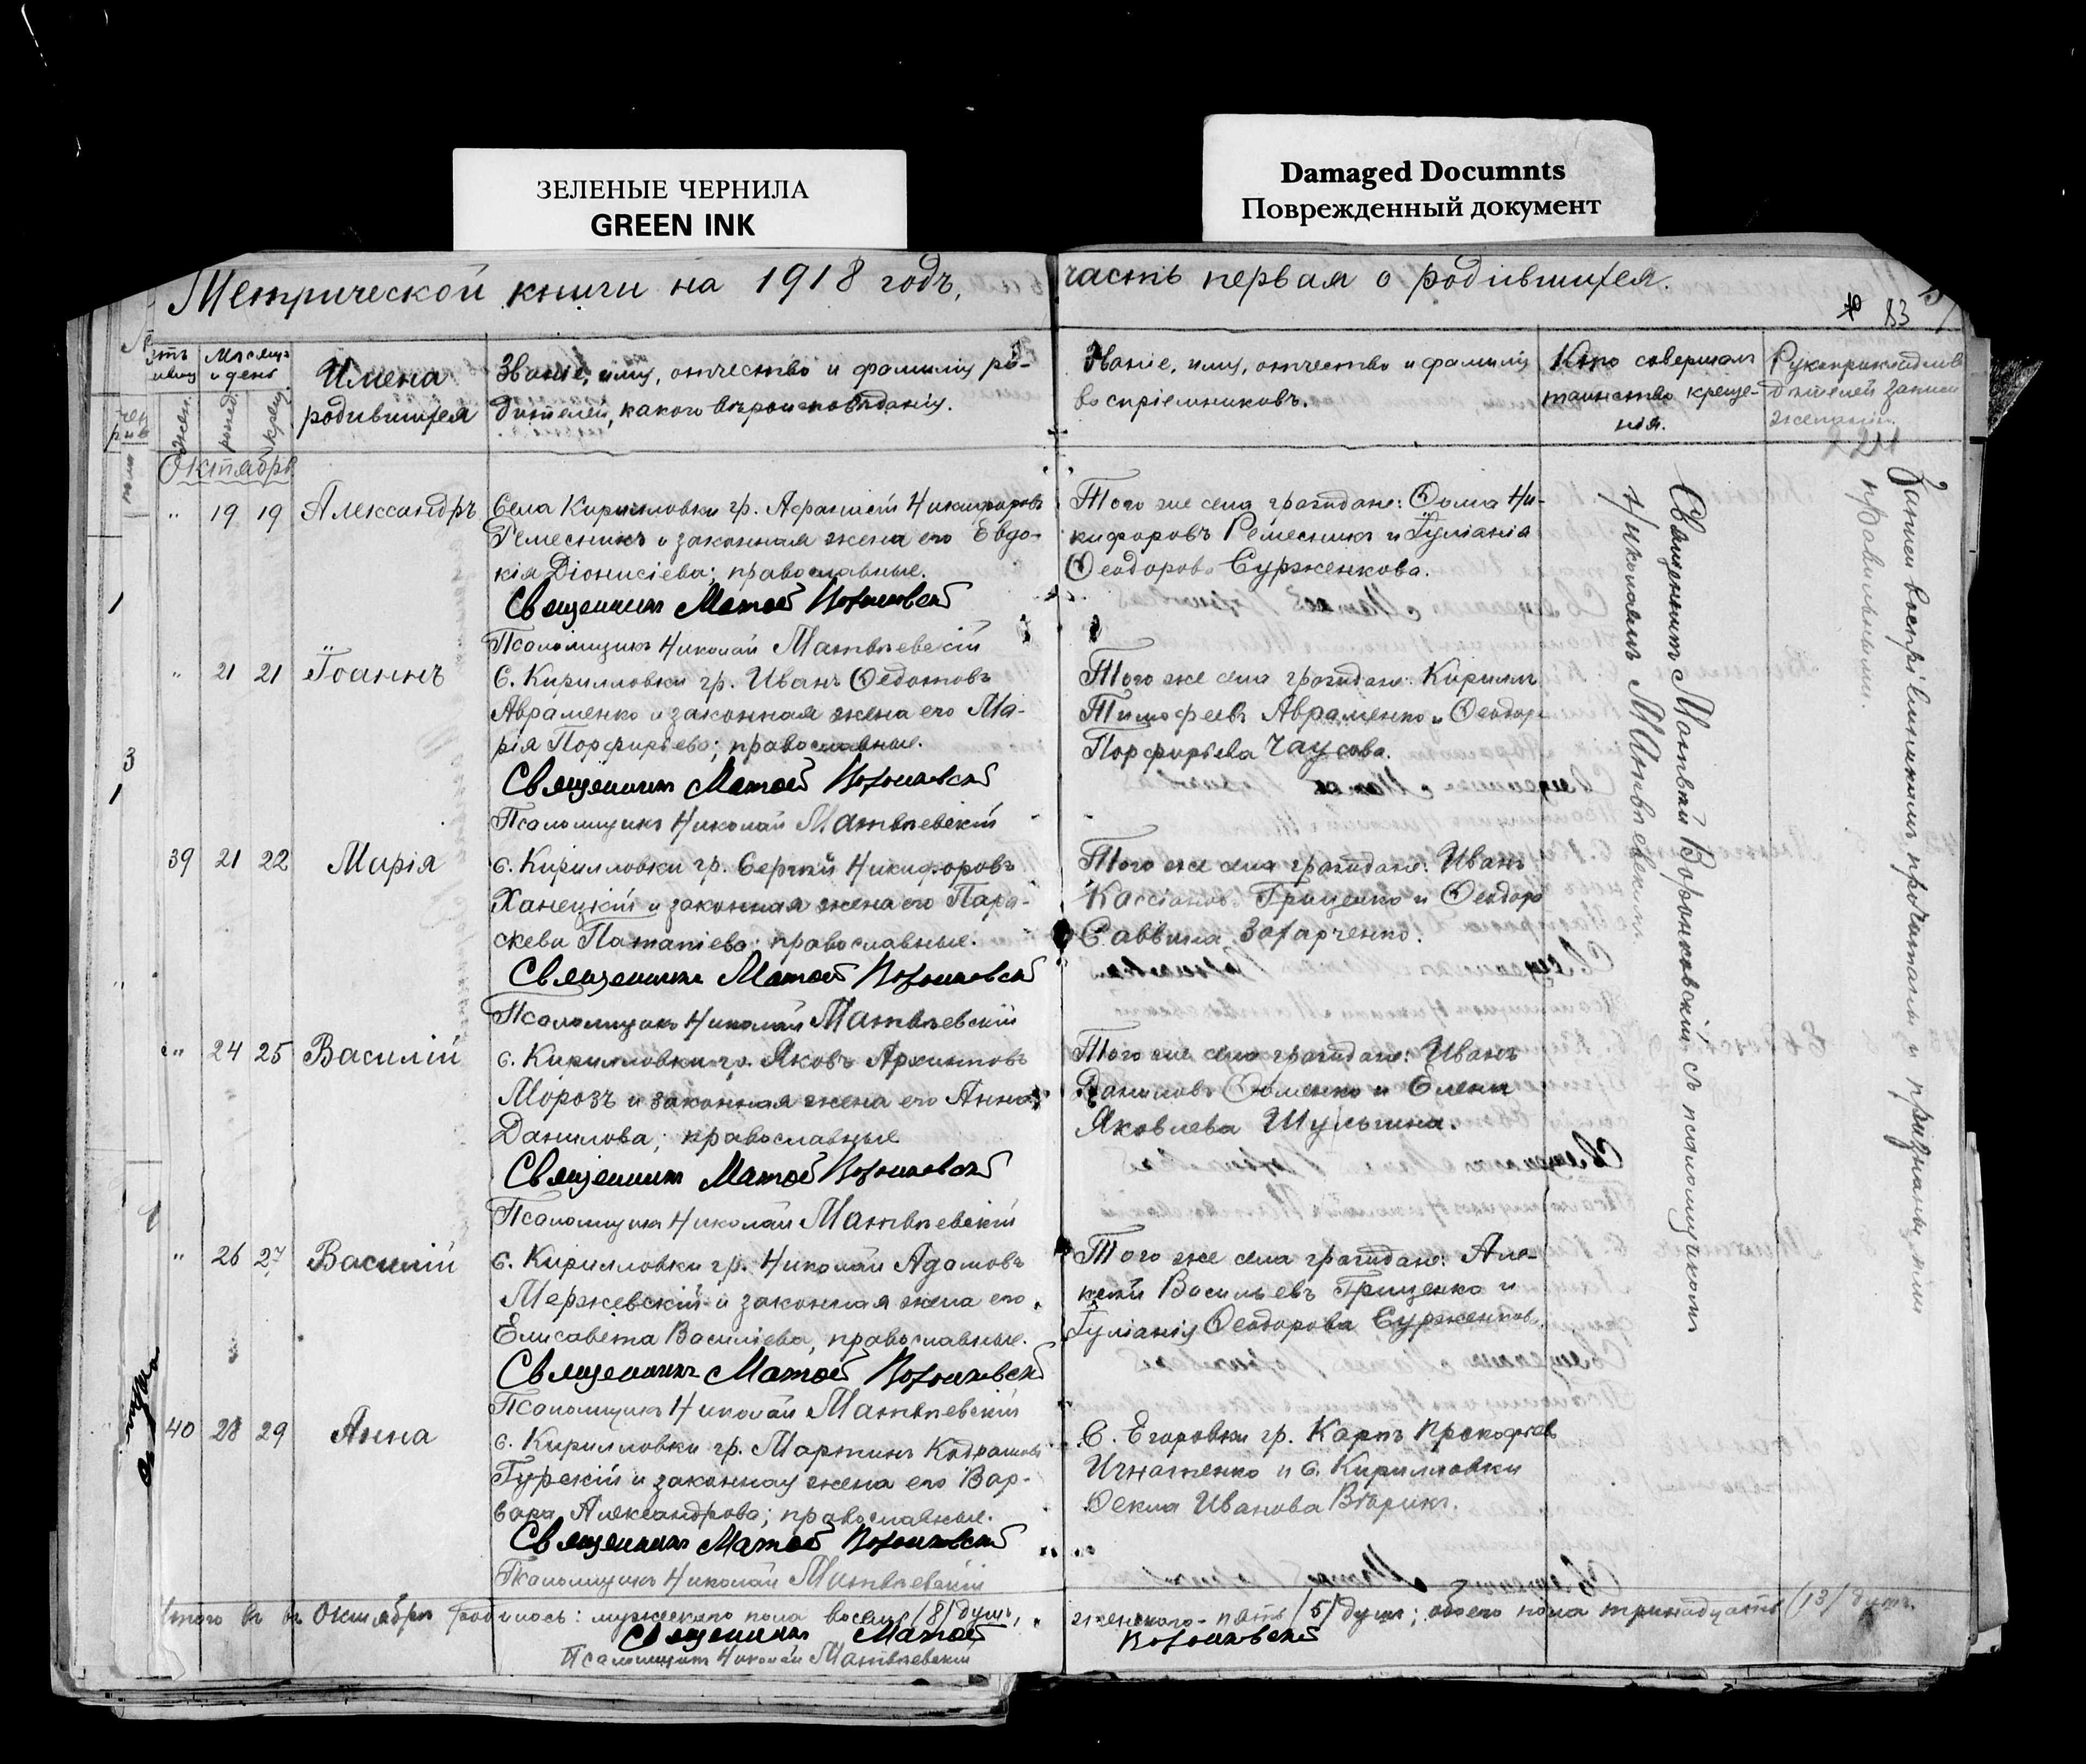 ЗЕЛЕНЫЕ ЧЕРНИЛА
GREEN INK
Damaged Documnts
Поврежденный документ
Метрической книги на 1918 годъ,
часть первая о родившихся.
83
Мѣсяцъ и день
Имена
родившихся
Званіе, имя, отчество и фамилія ро-
дителей, какого вѣроисповѣданія.
Званіе, имя, отчество и фамилія
воспріемниковъ.
Кто совершалъ
таинство креще-
нія.
Октябрь
" 19 19 Александръ
Села Кирилловки гр. Афанасій Никифоровъ
Ремесникъ и законная жена его Евдо-
кія Діонисіева; православные.
Священникъ Матвей Воронковскій
Псаломщикъ Николай Матвѣевскій
Того же села граждане: Ѳома Ни-
кифоровъ Ремесникъ и Іуліанія
Ѳеодорова Сурженкова.
1
" 21 21 Іоаннъ
С. Кирилловки гр. Иванъ Ѳедотовъ
Авраменко и законная жена его Ма-
рія Порфирьева; православные.
Священникъ Матвей Воронковскій
Псаломщикъ Николай Матвѣевскій
Того же села граждане: Кириллъ
Тимофеевъ Авраменко и Ѳеодора
Порфирьева Чаусова.
3
1
39 21 22 Марія
с. Кирилловки гр. Сергѣй Никифоровъ
Ханецкій и законная жена его Пара-
скева Патапіева; православные.
Священникъ Матвей Воронковскій
Псаломщикъ Николай Матвѣевскій
Того же села граждане: Иванъ
Кассіановъ Гриценко и Ѳеодора
Саввина Захарченко.
" 24 25 Василій
с. Кирилловки гр. Яковъ Архиповъ
Морозъ и законная жена его Анна
Данилова; православные
Священникъ Матвей Воронковскій
Псаломщикъ Николай Матвѣевскій
Того же села граждане: Иванъ
Даниловъ Ѳоменко и Елена
Яковлева Шульгина.
" 26 27 Василій
с. Кирилловки гр. Николай Адамовъ
Мержевскій и законная жена его
Елисавета Василіева, православные.
Священникъ Матвей Воронковскій
Псаломщикъ Николай Матвѣевскій
Того же села граждане: Але-
ксѣй Васильевъ Гриценко и
Іуліанія Ѳеодорова Сурженкова.
40 28 29 Анна
с. Кирилловки гр. Мартинъ Кодратовъ
Гурскій и законная жена его Вар-
вара Александрова; православные.
Священникъ Матвей Воронковскій
Псаломщикъ Николай Матвѣевскій
С. Егоровки гр. Карпъ Прокофьевъ
Игнатенко и с. Кирилловки
Ѳекла Иванова
Священникъ Матвей Воронковскій съ псаломщикомъ
Николаемъ Матвѣевскимъ.
Записи воспріемникамъ прочитаны и признаны ими
правильными.
Итого въ Октябрѣ родилось: мужского пола восемь /8/ душъ,
женского - пять /5/ душъ; обоего пола тринадцать /13/ душъ.
Священникъ Матвей Воронковскій
Псаломщикъ Николай Матвѣевскій